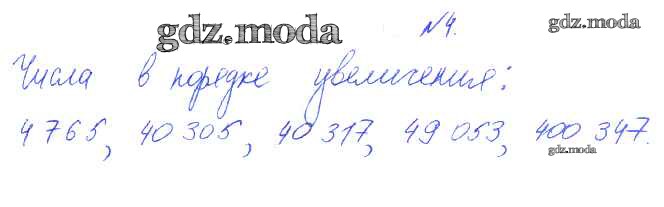 gdz.moda №4. gdz.moda
Числа в порядке увеличения:
4 765, 40 305, 40 317, 49 053, 400 347.
gdz.moda